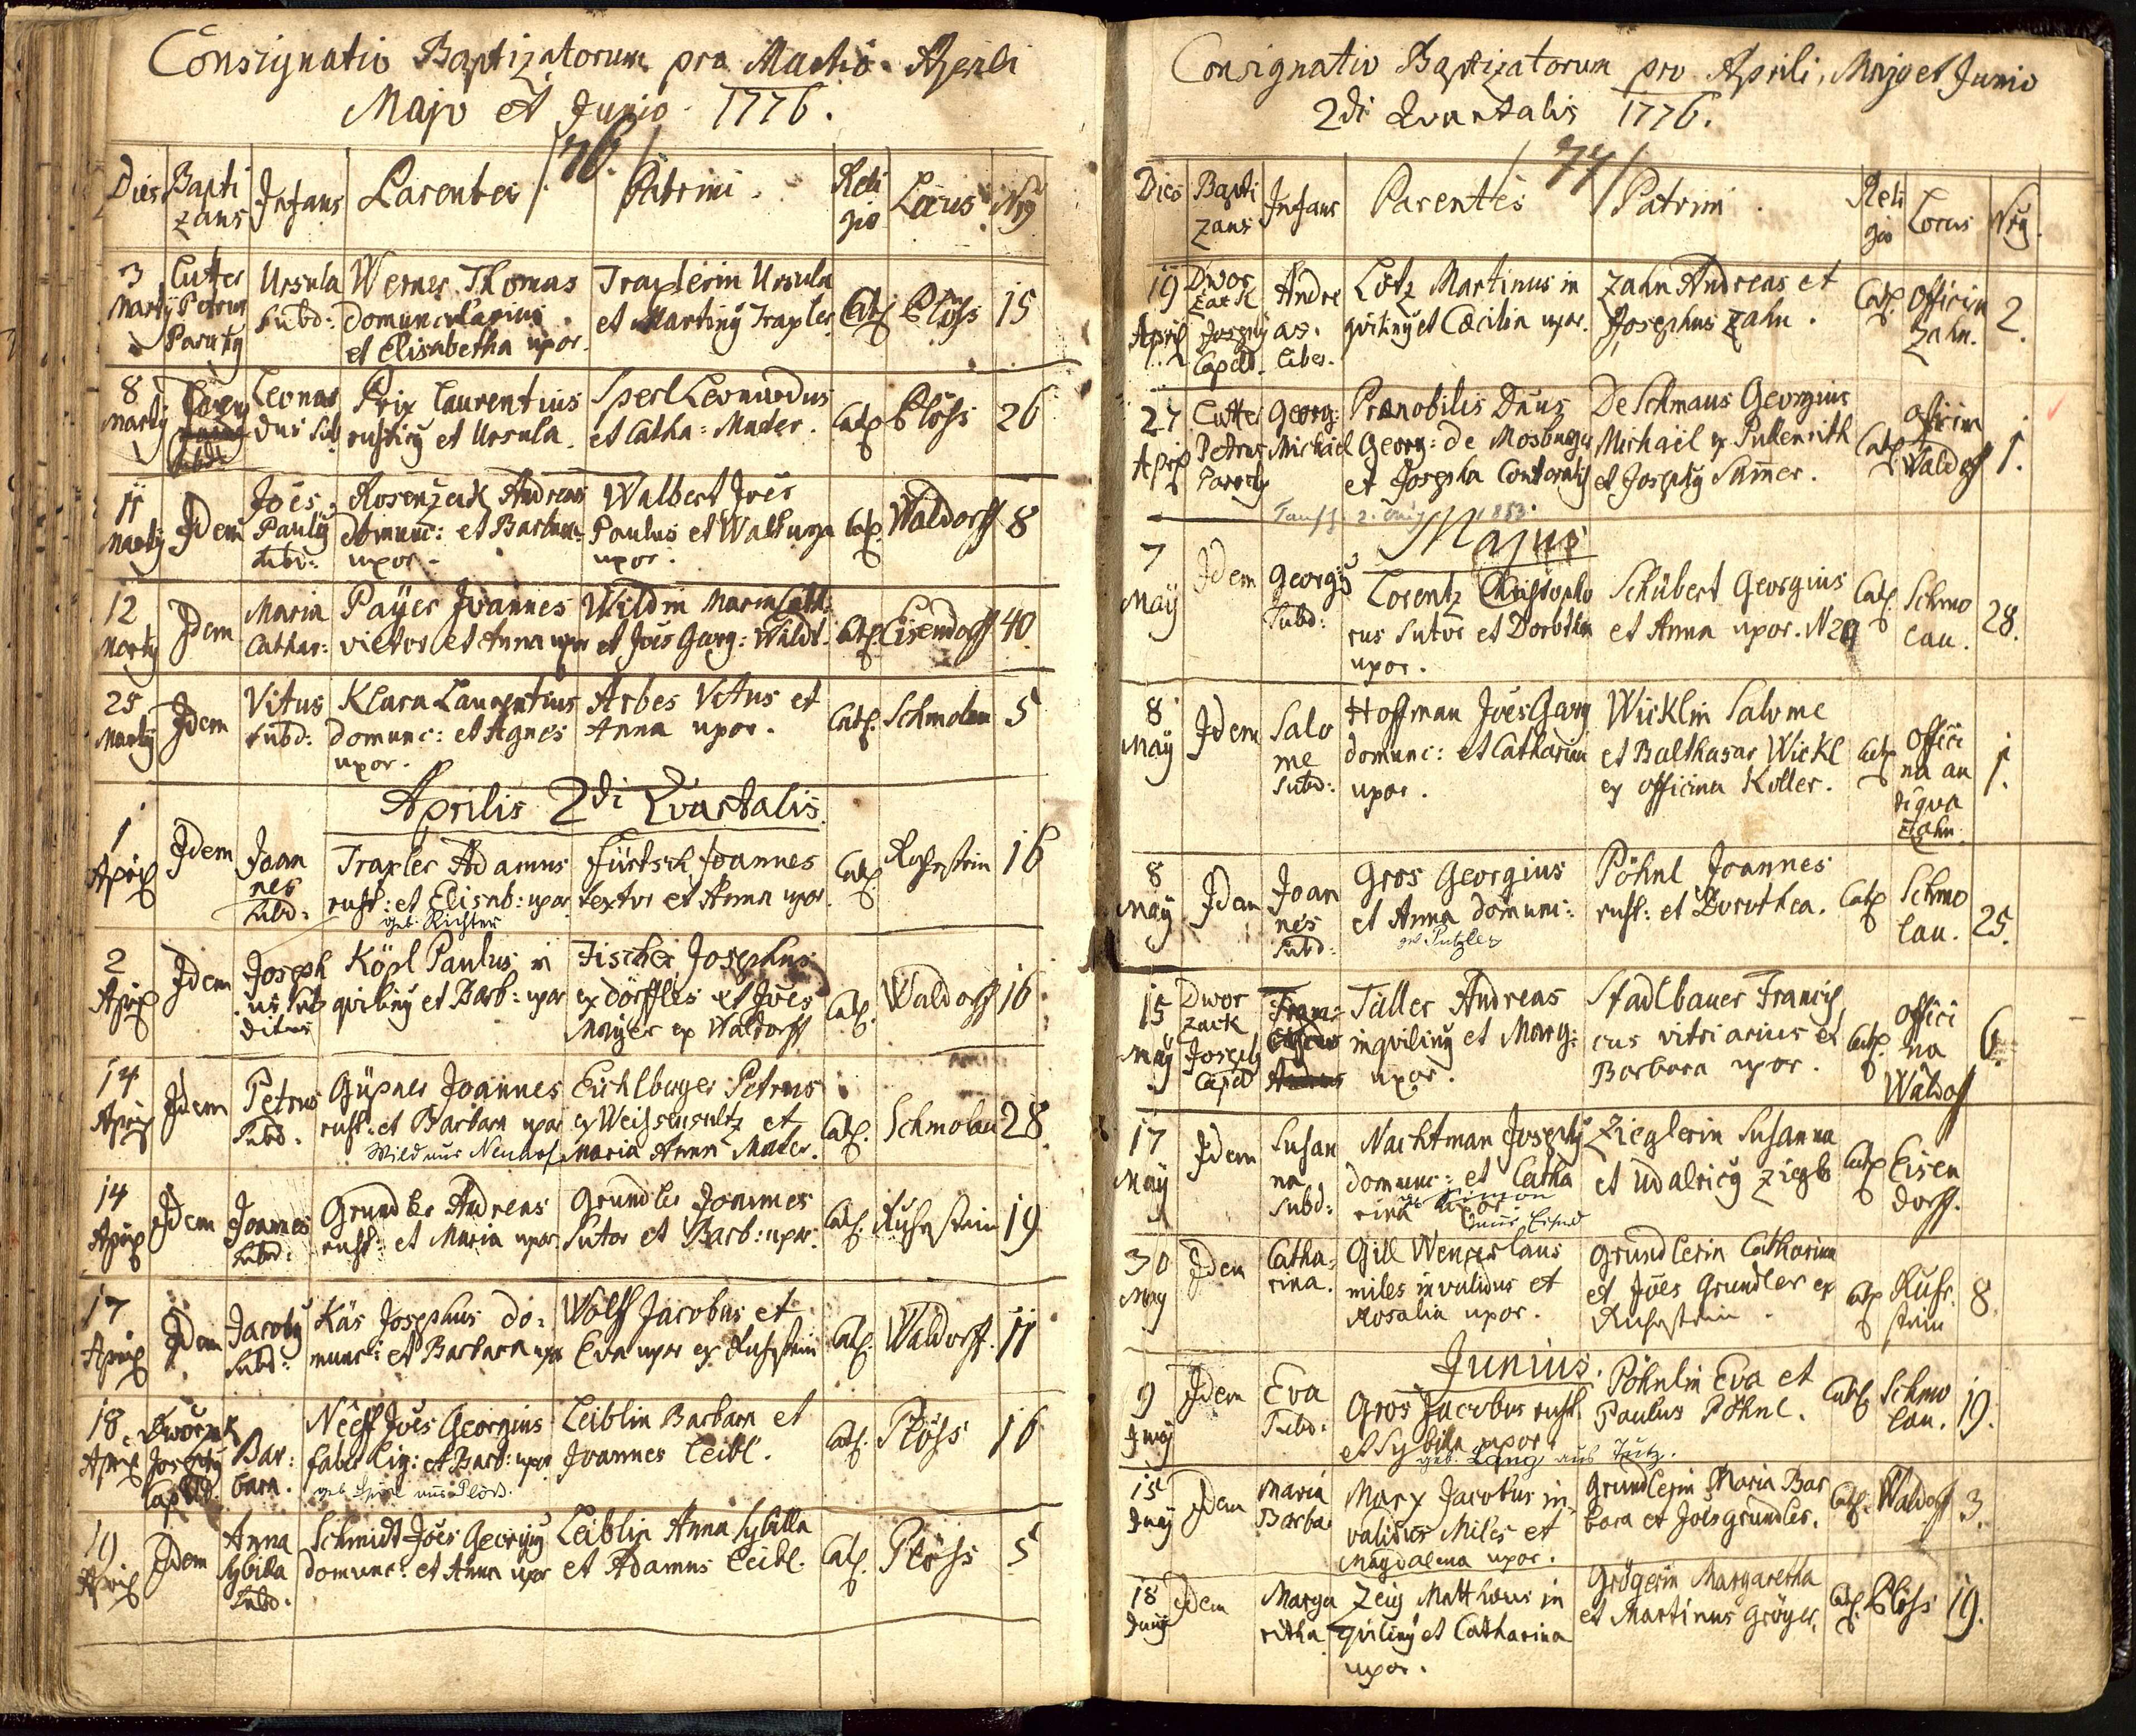 Consignatio Baptizatorum pro Martio Aprili
Majo et Junio 1776.
76.
Dies Bapti zans Infans Parentes Patrini Reli gio Locus Nrg
3 Marty Cutter Petrus Paruty Ursula Subd: Werner Thomas domuncularius et Elisabetha uxor. Traxlerin Ursula et Martiny Traxler Cath Plöss 15
8 Marty Leonar dus Sub Prix Laurentius rusticy et Ursula. Sperl Leonardus et Catha: Mader. Cath Plöss 26
11 Marty Idem Joes Pauly subd: Rosenzack Andreas domunc: et Barbara uxor. Walbert Joes Paulus et Walburga uxor. Cath Waldorff 8
12 Marty Idem Maria Cathar: Payer Joannes vietor et Anna uxor Wildin Maria Cath: et Joes Georg: Waldt. Cath. Eisendorff 40
25 Marty Idem Vitus subd: Klara Laurentius domunc: et Agnes uxor. Arbes Vitus et Anna uxor. Cath. Schmolau 5
Aprilis 2di Quartalis.
1 April Idem Joan nes subd: Traxler Adamus rust: et Elisab: uxor. Fürtsch Joannes textor et Anna uxor. Cath Ruhstein 16
geb. Richter
2 April Idem Joseph us sub ditus Köpl Paulus in quiliny et Barb: uxor Fischer Josephus ex Dörffles et Joes Mayer ex Waldorff Cath. Waldorff 16
14 April Idem Petrus Subd. Güpner Joannes rust: et Barbara uxor Eichlberger Petrus ex Weissensultz et Maria Anna Mader. Cath. Schmolau 28
Wild aus Neuhof
14 April Idem Joannes Subd: Grundler Andreas rust: et Maria uxor. Grundler Joannes Sutor et Barb: uxor. Cath. Ruhstein 19
17 April Idem Jacoby Subd: Käs Josephus do: munc: et Barbara uxor Wolff Jacobus et Eva uxor ex Ruhstein Cath. Waldorff. 11
18 April Dworzak Josephy Capelld. Bar: bara. Neeff Joes Georgius faber lig: et Barb: uxor Leiblin Barbara et Joannes Leibl. Cath. Plöss 16
19 April Idem Anna Sybilla Subd. Schmidt Joes Georgy domunc: et Anna uxor Leiblin Anna Sybilla et Adamus Leibl. Cath. Plöss 5
Consignatio Baptizatorum pro Aprili, Majo et Junio
2di Quartalis 1776.
77
Dies Bapti zans Infans Parentes Patrini Reli gio Locus Nrg.
19 April Dwor zack Josephy Capelld. Andre as. liber. Lötz Martinus in quiliny et Cæcilia uxor. Zahn Andreas et Josephus Zahn. Cath. Officin Zahn. 2.
27 April Cutter Petrus Paroch Georg: Michael Prænobilis Dnus Georg: de Mosburg et Josepha Contoralis De Schmaus Georgius Michaël ex Pullenrith et Josephy Samer. Cath Officin Waldorff 1.
Majus
7 May Idem Georgy Subd: Lorentz Christopho rus Sutor et Dorothea uxor. Schübert Georgius et Anna uxor. N 29 Cath. Schmo lau. 28.
8 May Idem Salo me Subd: Hoffman Joes Georg domunc: et Catharina uxor. Wicklin Salome et Balthasar Wickl ex officina Koller. Cath Offici na an tiqua Zahn. 1.
8 May Idem Joan nes Subd: Gros Georgius et Anna domunc: Pöhnl Joannes rust: et Dorothea. Cath Schmo lau. 25.
geb Putzler
15 May Dwor zack Josephy Capeld Tüller Andreas inquiliny et Marg: uxor. Stadlbauer Francis cus vitriarius et Barbara uxor. Cath. Offici na Waldoff 6.
17 May Idem Susan na Subd: Nachtman Josephy domunc: et Catha rina uxor. Zieglerin Susanna et Udalricy Ziegler Cath Eisen dorff.
30 May Idem Catha: rina. Gill Wenceslaus miles invalidus et Rosalia uxor. Grundlerin Catharina et Joes Grundler ex Ruhstein. Cath Ruh stein 8.
Junius.
9 Juny Idem Eva Subd: Gros Jacobus rust. et Sybilla uxor. Pöhnlin Eva et Paulus Pöhnl. Cath Schmo lau. 19.
geb. Lang aus Tutz.
15 Juny Idem Maria Barba Marx Jacobus in: validus Miles et Magdalena uxor. Grundlerin Maria Bar bara et Joes Grundler. Cath. Waldorff 3.
18 Juny Idem Marga retha Zeig Matthæus in quiliny et Catharina uxor. Grögerin Margaretha et Martinus Gröger. Cath. Plöss 19.